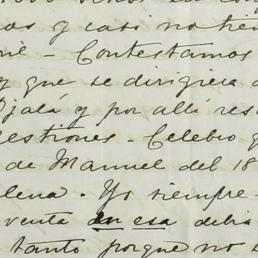 os y casi no tien
- Contestamos
y que se dirigiera a
Ojalá y por allí res
estiones - Celebro q
de Manuel del 18
lena. Yo siempre
venta en esa debia
tanto porque no